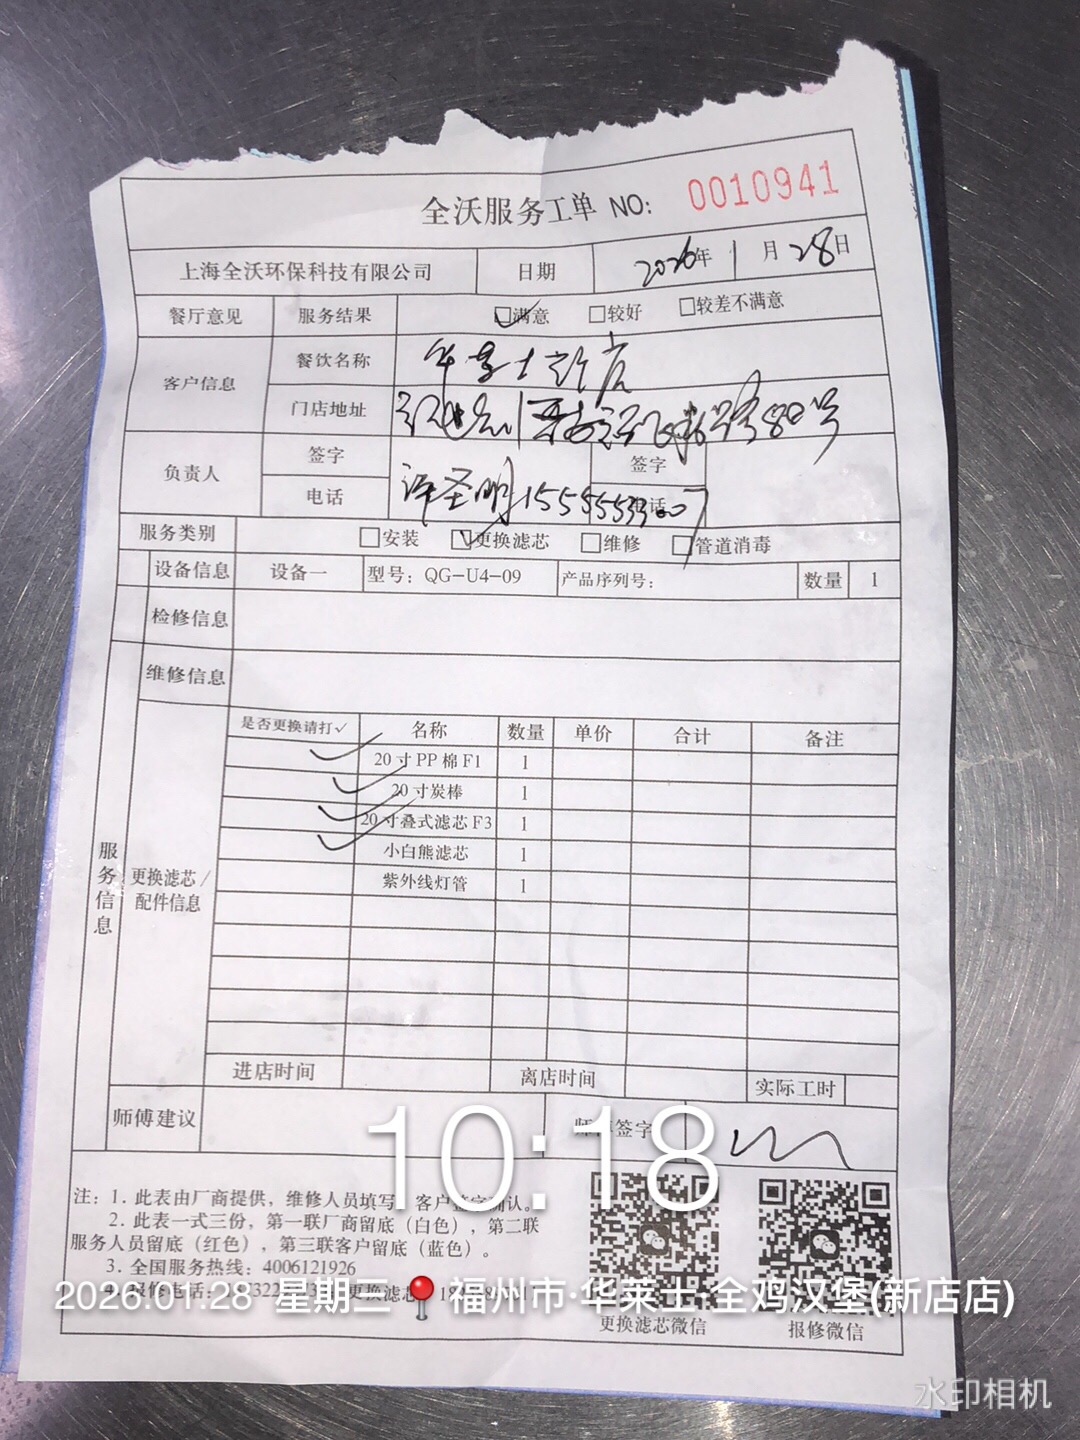 全沃服务工单 NO: 0010941
上海全沃环保科技有限公司 日期 2026年1月28日
餐厅意见 服务结果 满意 较好 较差不满意
客户信息 餐饮名称 华莱士新店
门店地址 80号
负责人 签字 许圣明 签字
电话 电话
服务类别 安装 更换滤芯 维修 管道消毒
设备信息 设备一 型号：QG-U4-09 产品序列号： 数量 1
检修信息
维修信息
服务信息
更换滤芯/配件信息
是否更换请打✓ 名称 数量 单价 合计 备注
✓ 20寸PP棉F1 1
✓ 20寸炭棒 1
✓ 20寸叠式滤芯F3 1
✓ 小白熊滤芯 1
紫外线灯管 1
进店时间 离店时间 实际工时
师傅建议 师傅签字
10:18
注：1．此表由厂商提供，维修人员填写，客户签字确认。
2．此表一式三份，第一联厂商留底（白色），第二联
服务人员留底（红色），第三联客户留底（蓝色）。
3．全国服务热线：4006121926
4．报修电话： 更换滤芯
2026.01.28 星期三 福州市·华莱士·全鸡汉堡(新店店)
更换滤芯微信 报修微信
水印相机